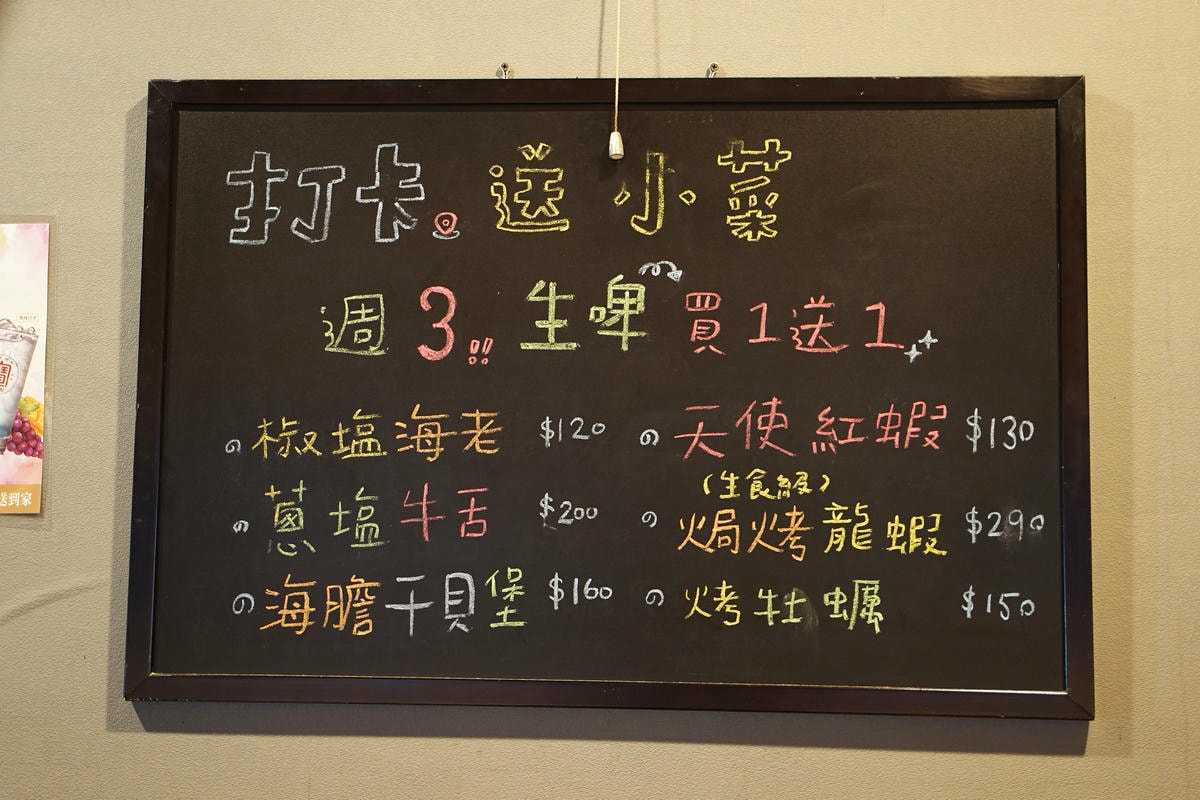 打卡 送 小 菜
週 3!! 生啤 買1送1
の 椒塩海老 $120
の 天使紅蝦 $130
(生食級)
の 蔥塩牛舌 $200
の 焗烤龍蝦 $290
の 海膽干貝堡 $160
の 烤牡蠣 $150
送到家